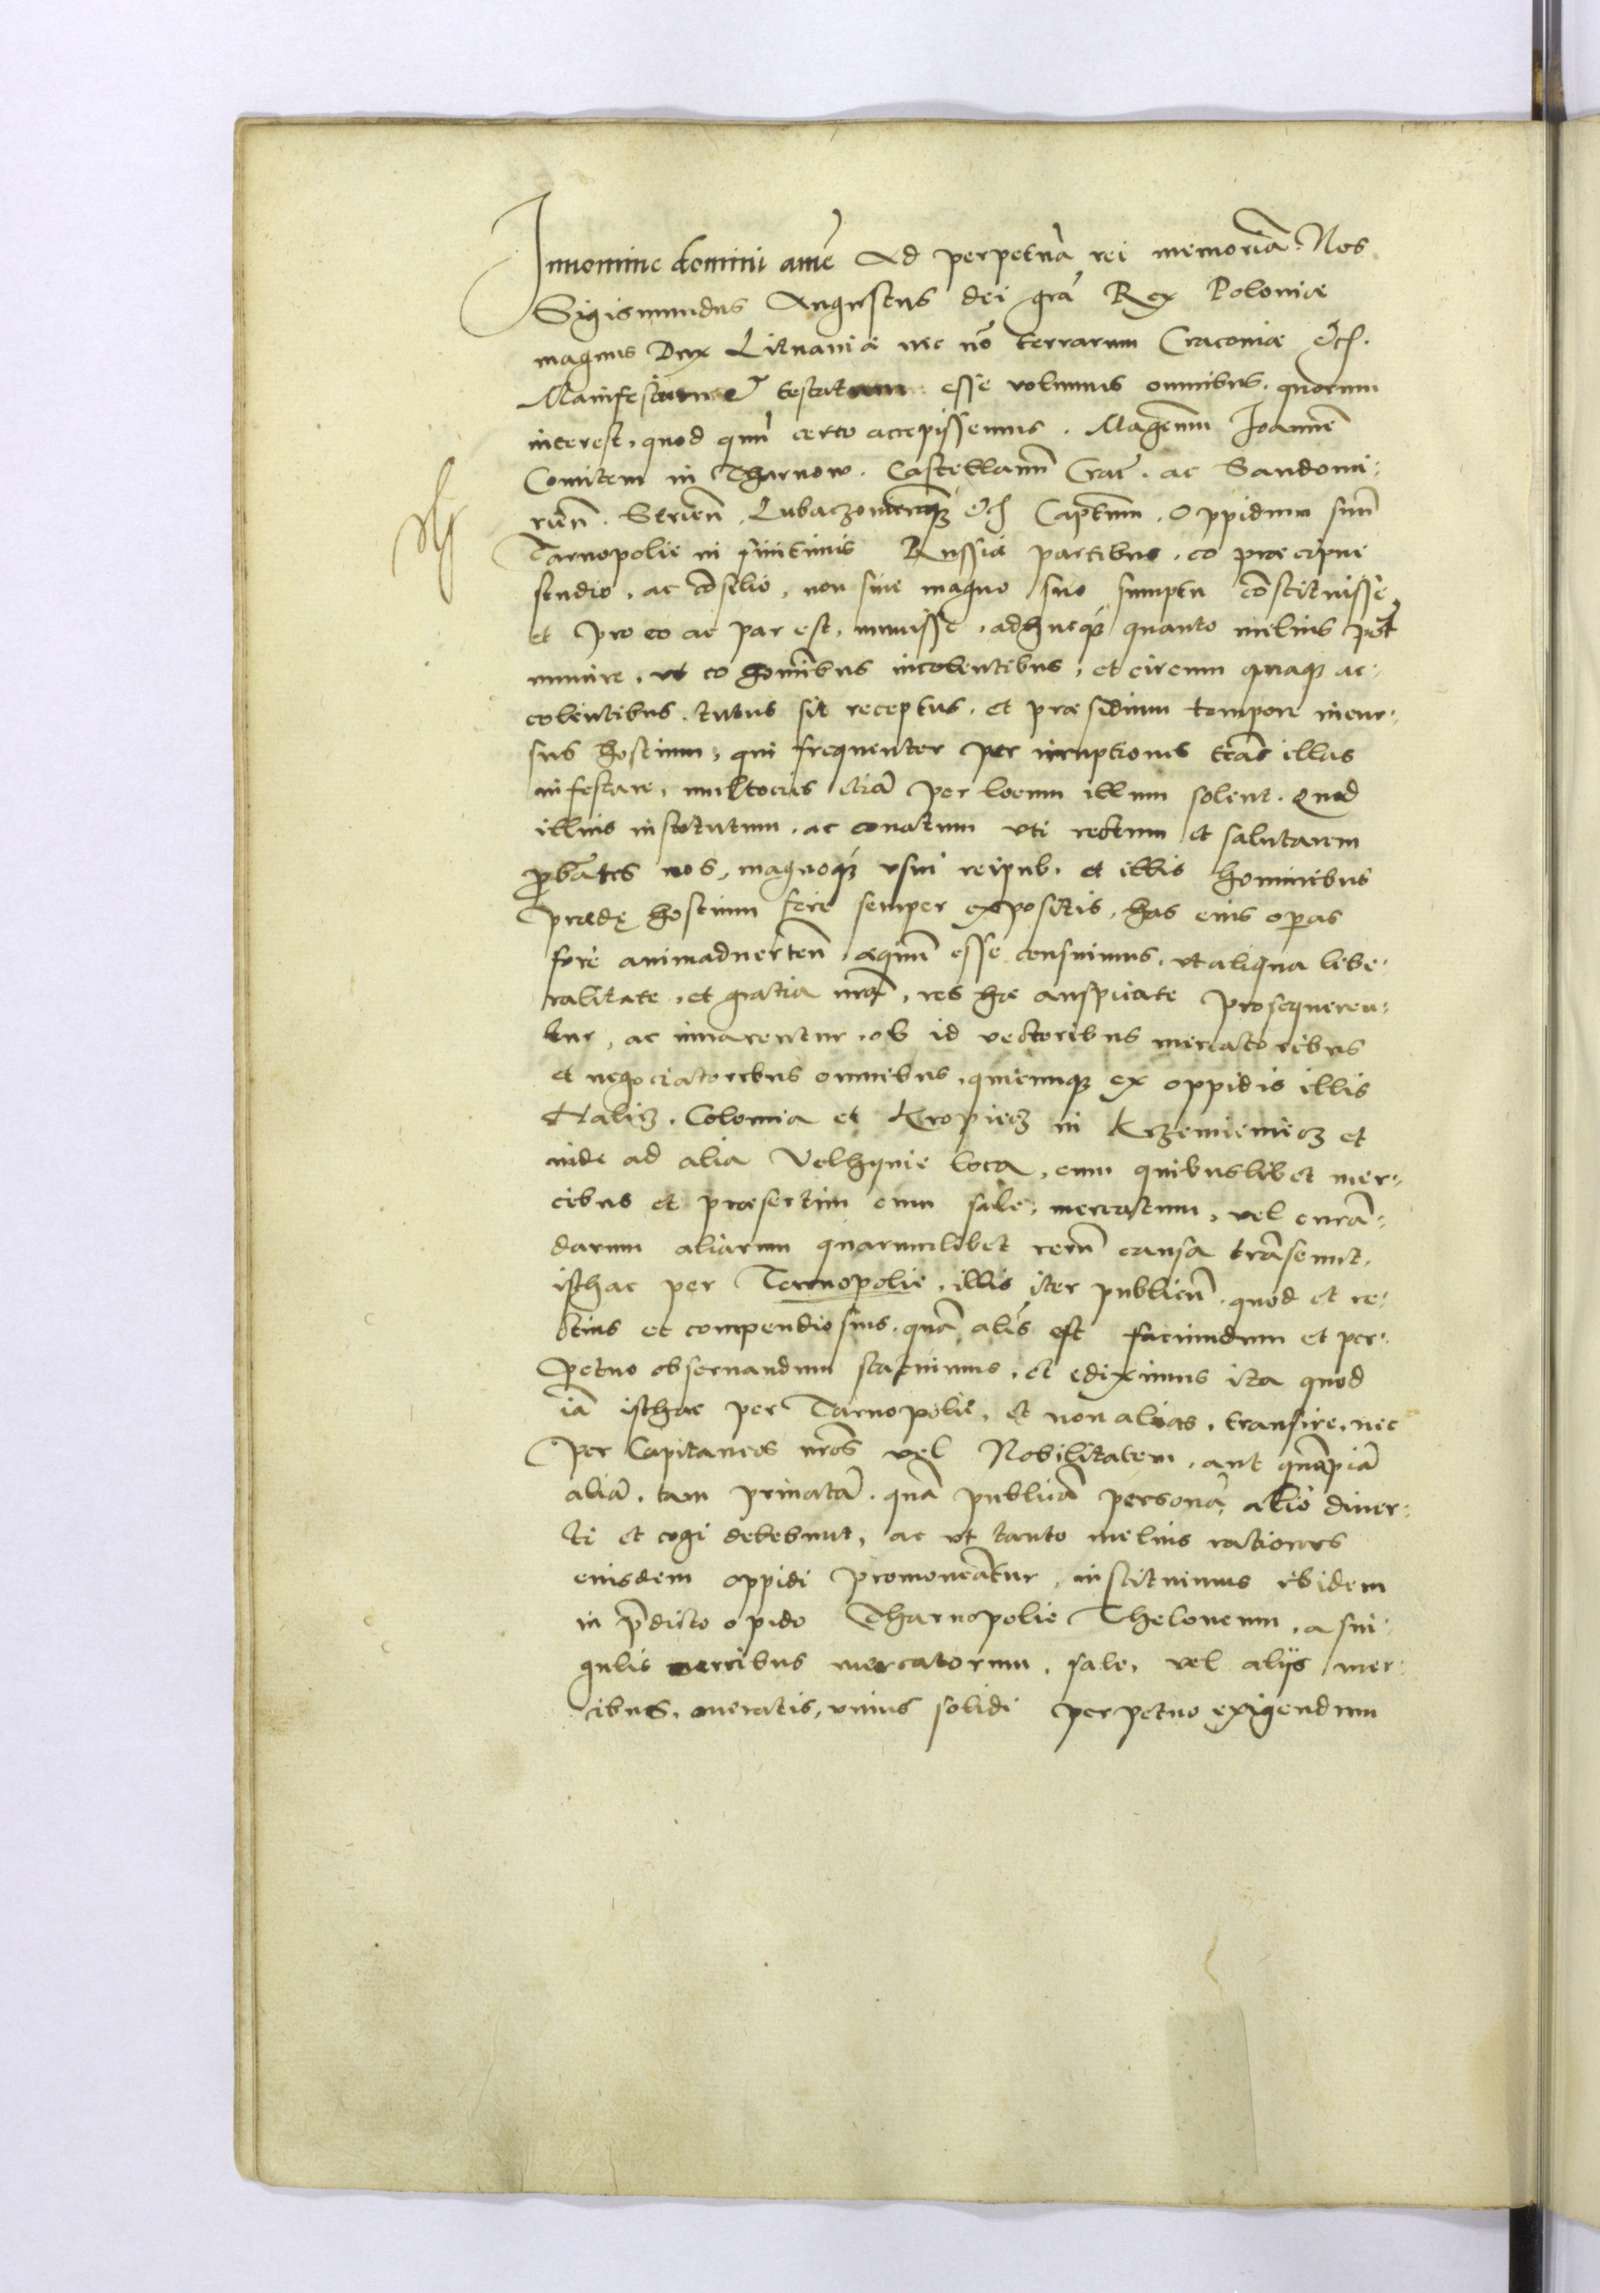 Innomine domini amē Ad perpetuā rei memoriā. Nos
Sigismundus Augustus dei grā Rex Poloniæ
magnus Dux Lituaniæ nec nō terrarum Cracoviæ etc.
Manifestum et testatum esse volumus omnibus, quorum
interest, quod quū certo accepissemus. Magcum Ioannē
Comitem in Tharnow. Castellanū Crac. ac Sandomi:
rien̄. Strien̄. Lubaczowien̄q etc Captum. Oppidum suū
Tarnopolie in finitimis Russiæ partibus, eo præcipue
studio, ac cōsilio, non sine magno suo sumptu cōstituisse,
et pro eo ac par est, muniisse, adhucq quanto melius pōt
munire, ut eo hominibus incolentibus, et circum quaq ac:
colentibus, tutus sit receptus, et præsidium tempore incur:
sus hostium, qui frequenter per irruptiones trās illas
infestare, multocies etiā per locum illum solent. Quod
illius institutum, ac conatum uti rectum et salutarem
probātes nos, magnoq usui reipub. et illis hominibus
prædę hostium fere semper expositis, has eius operas
fore animadverten̄, æquū esse censuimus, ut aliqua libe:
ralitate, et gratia nrā, res hæ auspicate prosequeren:
tur, ac iuuarentur, ob id vectoribus mercatoribus
et negociatoribus omnibus, quicunq ex oppidis illis
Halicz. Colomia et Kropiecz in Krzemieniecz et
inde ad alia Volhynie loca, cum quibuslibet mer:
cibus et præsertim cum sale, mercatum, vel curā:
darum aliarum quarumlibet rerū causa trāseunt.
isthac per Tarnopolie, illis iter publicū, quod et re:
ctius et compendiosius, quā aliās est faciundum et per:
petuo observandum statuimus, et ediximus ita quod
iā isthac per Tarnopolie, et non alias, transire, nec
per Capitaneos nrōs vel Nobilitatem, aut quāpiā
aliā, tam privatā, quā publicā personā, alio diver:
ti et cogi debebunt, ac ut tanto melius rationes
eiusdem oppidi promoveātur, instituimus ibidem
in p̄dicto opido Tharnopolie Theloneum, a sin:
gulis curribus mercatorum, sale, vel aliis mer:
cibus, oneratis, unius solidi perpetuo exigendum